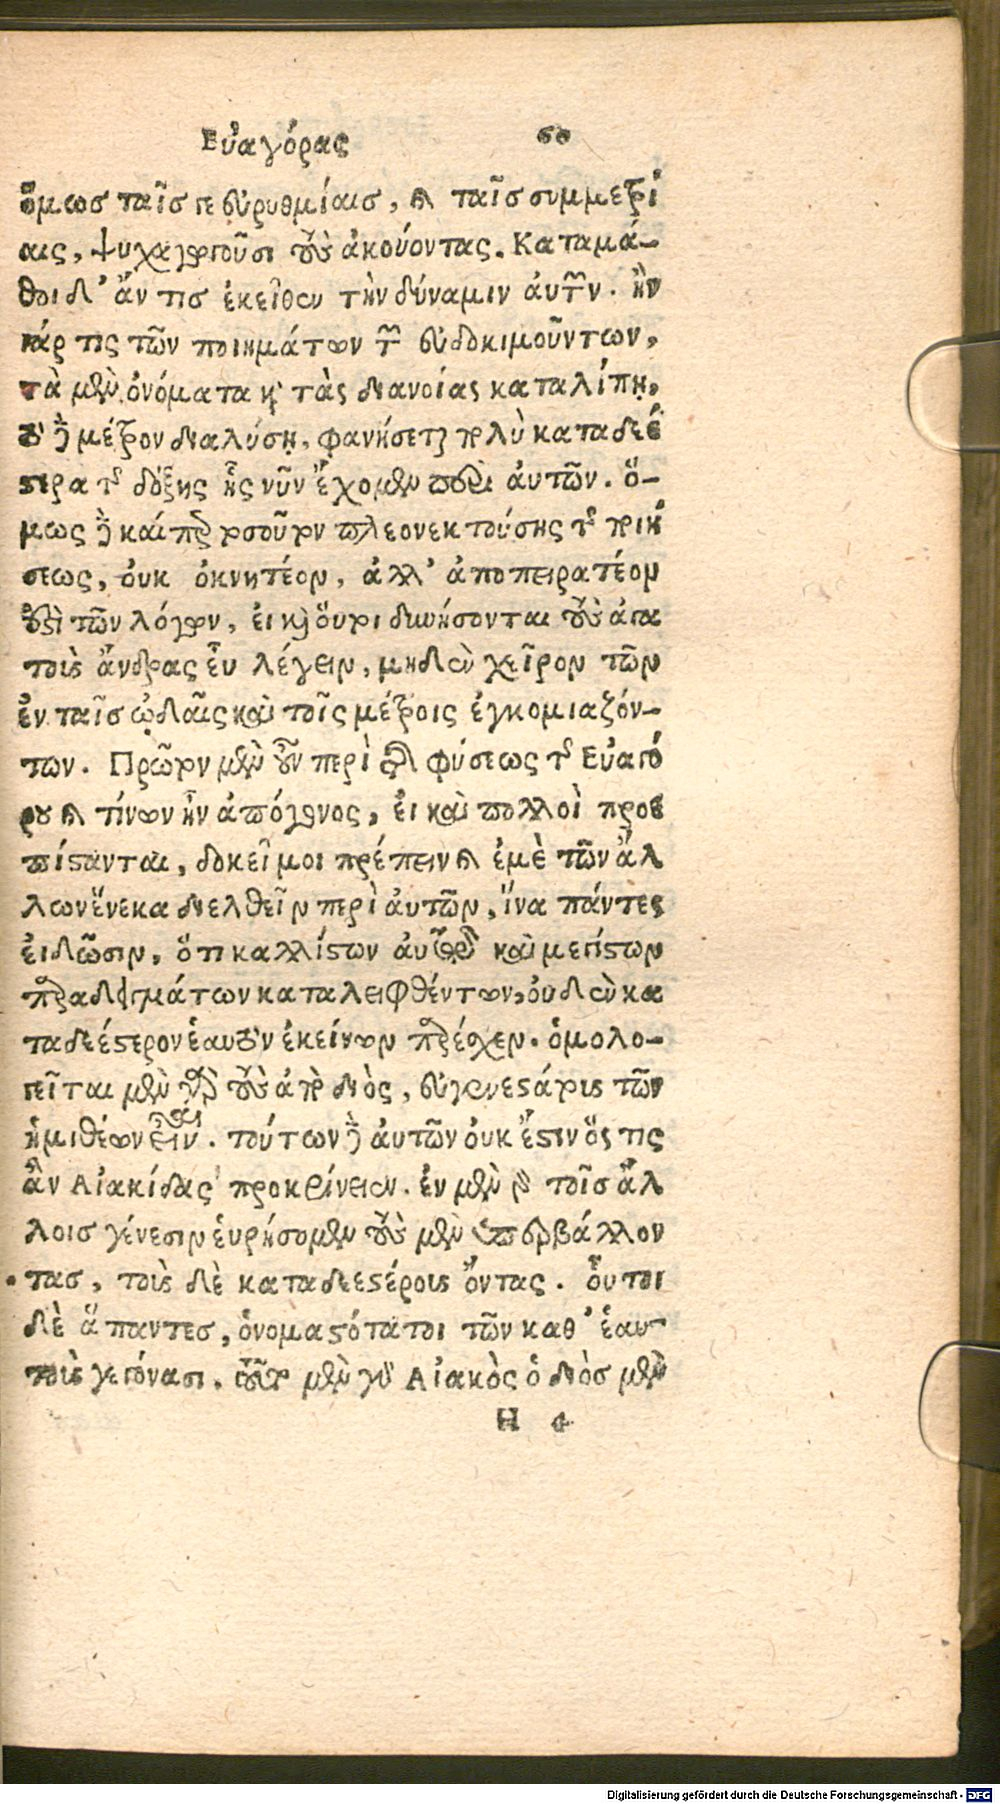 Εὐαγόρας 60
ὅμως ταῖς γε εὐρυθμίαις, καὶ ταῖς συμμετρί
αις, ψυχαγωγοῦσι τοὺς ἀκούοντας. Καταμά-
θοι δ' ἄν τις ἐκεῖθεν τὴν δύναμιν αὐτῶν. ἢν
γάρ τις τῶν ποιημάτων τῶν εὐδοκιμούντων,
τὰ μὲν ὀνόματα καὶ τὰς διανοίας καταλίπῃ,
τὸ δὲ μέτρον διαλύσῃ, φανήσεται πολὺ καταδεέ
στερα τῆς δόξης ἧς νῦν ἔχομεν περὶ αὐτῶν. ὅ-
μως δὲ καίπερ τοσοῦτον πλεονεκτούσης τῆς ποιή
σεως, οὐκ ὀκνητέον, ἀλλ' ἀποπειρατέον
ἐπὶ τῶν λόγων, εἰ καὶ τοῦτο δυνήσονται τοὺς ἀγα
τοὺς ἄνδρας εὖ λέγειν, μηδὲν χεῖρον τῶν
ἐν ταῖς ᾠδαῖς καὶ τοῖς μέτροις ἐγκομιαζόν-
των. Πρῶτον μὲν οὖν περὶ τῆς φύσεως τῆς Εὐαγό
ρου καὶ τίνων ἦν ἀπόγονος, εἰ καὶ πολλοὶ προε
πίστανται, δοκεῖ μοι πρέπειν καὶ ἐμὲ τῶν ἄλ
λων ἕνεκα διελθεῖν περὶ αὐτῶν, ἵνα πάντες
εἰδῶσιν, ὅτι καλλίστων αὐτῷ καὶ μεγίστων
παραδειγμάτων καταλειφθέντων, οὐδὲν κα
ταδεέστερον ἑαυτὸν ἐκείνων παρέσχεν. ὁμολο-
γεῖται μὲν γὰρ τοὺς ἀπὸ Διὸς, εὐγενεστάτους τῶν
ἡμιθέων εἶναι. τούτων δὲ αὐτῶν οὐκ ἔστιν ὅς τις
ἂν Αἰακίδας προκρίνειεν. ἐν μὲν γὰρ τοῖς ἄλ
λοις γένεσιν εὑρήσομεν τοὺς μὲν ὑπερβάλλον
τας, τοὺς δὲ καταδεεστέρους ὄντας. οὗτοι
δὲ ἅπαντες, ὀνομαστότατοι τῶν καθ' ἑαυ
τοὺς γεγόνασι. τοῦτο μὲν γὰρ Αἰακὸς ὁ Διὸς μὲν
H 4
Digitalisierung gefördert durch die Deutsche Forschungsgemeinschaft - DFG